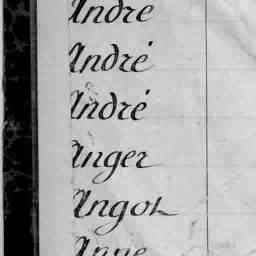 André
André
André
Anger
Angot
Anne